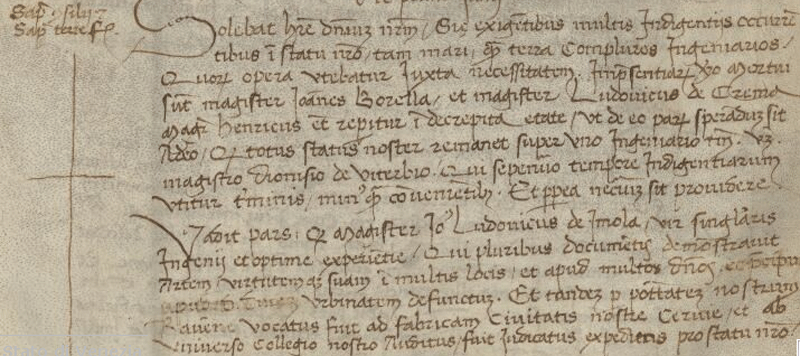 Sap. filij
Sap. terre f.
Solebat hr̄e dn̄iuz nr̄m, Sic exigentibus multis Indigentijs occurrē
tibus ī statu nr̄o, tam mari, qȝ terra Complures Ingeniarios /
Quorꝝ opera vtebatur Iuxta necessitatem. Impsentiarꝝ ṽo Mortui
sūt magister Joānes Borella, et magister Ludovicus de Crema
Magr̄ Henricus et̄ repitur ī decrepita etate / vt de eo parꝝ speraduz sit
Adeo, Qȝ totus status noster remanet super vno Ingeniario tm̄. Vz.
magistro dionisio de Viterbio. Qui sepenūo tempore Indigentiarum
vtitur t'minis, min' qȝ cōvenietibȝ. Et pp̄ea necīuz sit providere
Vadit pars: Qȝ Magister Jo. Ludovicus de Imola, vir singlaris
Ingenij et optime experietie, Qui pluribus documetis demostravit
Artem, virtutemqȝ suam ī multis locis, et apud multos dn̄os,
Vrbinatem defunctuz. Et tandez p ptātez nostrum
Ravene vocatus fuit ad fabricam Civitatis nostre Cervie, et ab
vniverso Collegio nostro Auditus, fuit Iudicatus expeditis pro statu nr̄o.